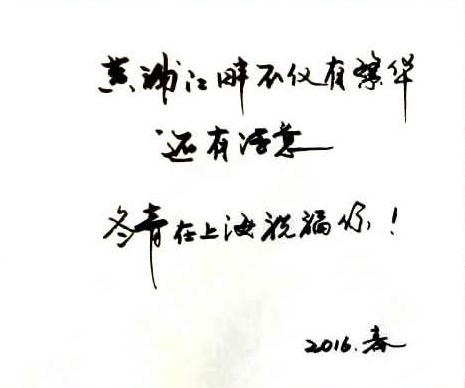 黄浦江畔不仅有繁华
还有诗意
冬青在上海祝福你！
2016.春